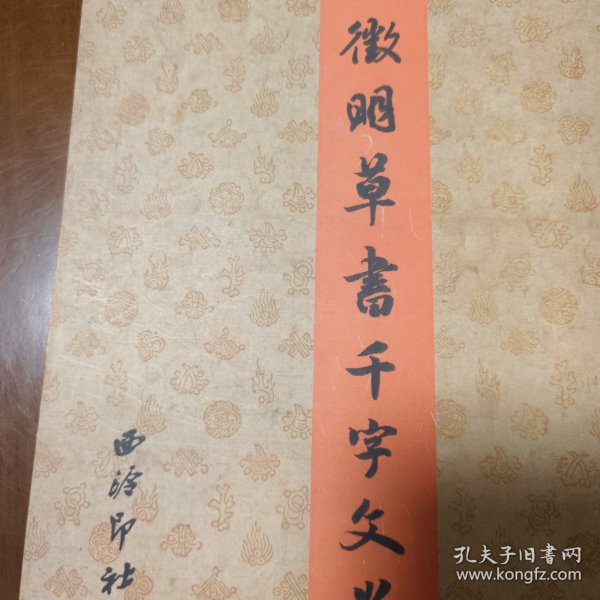 徵明草書千字文
西泠印社
孔夫子旧書网
www.kongfz.com